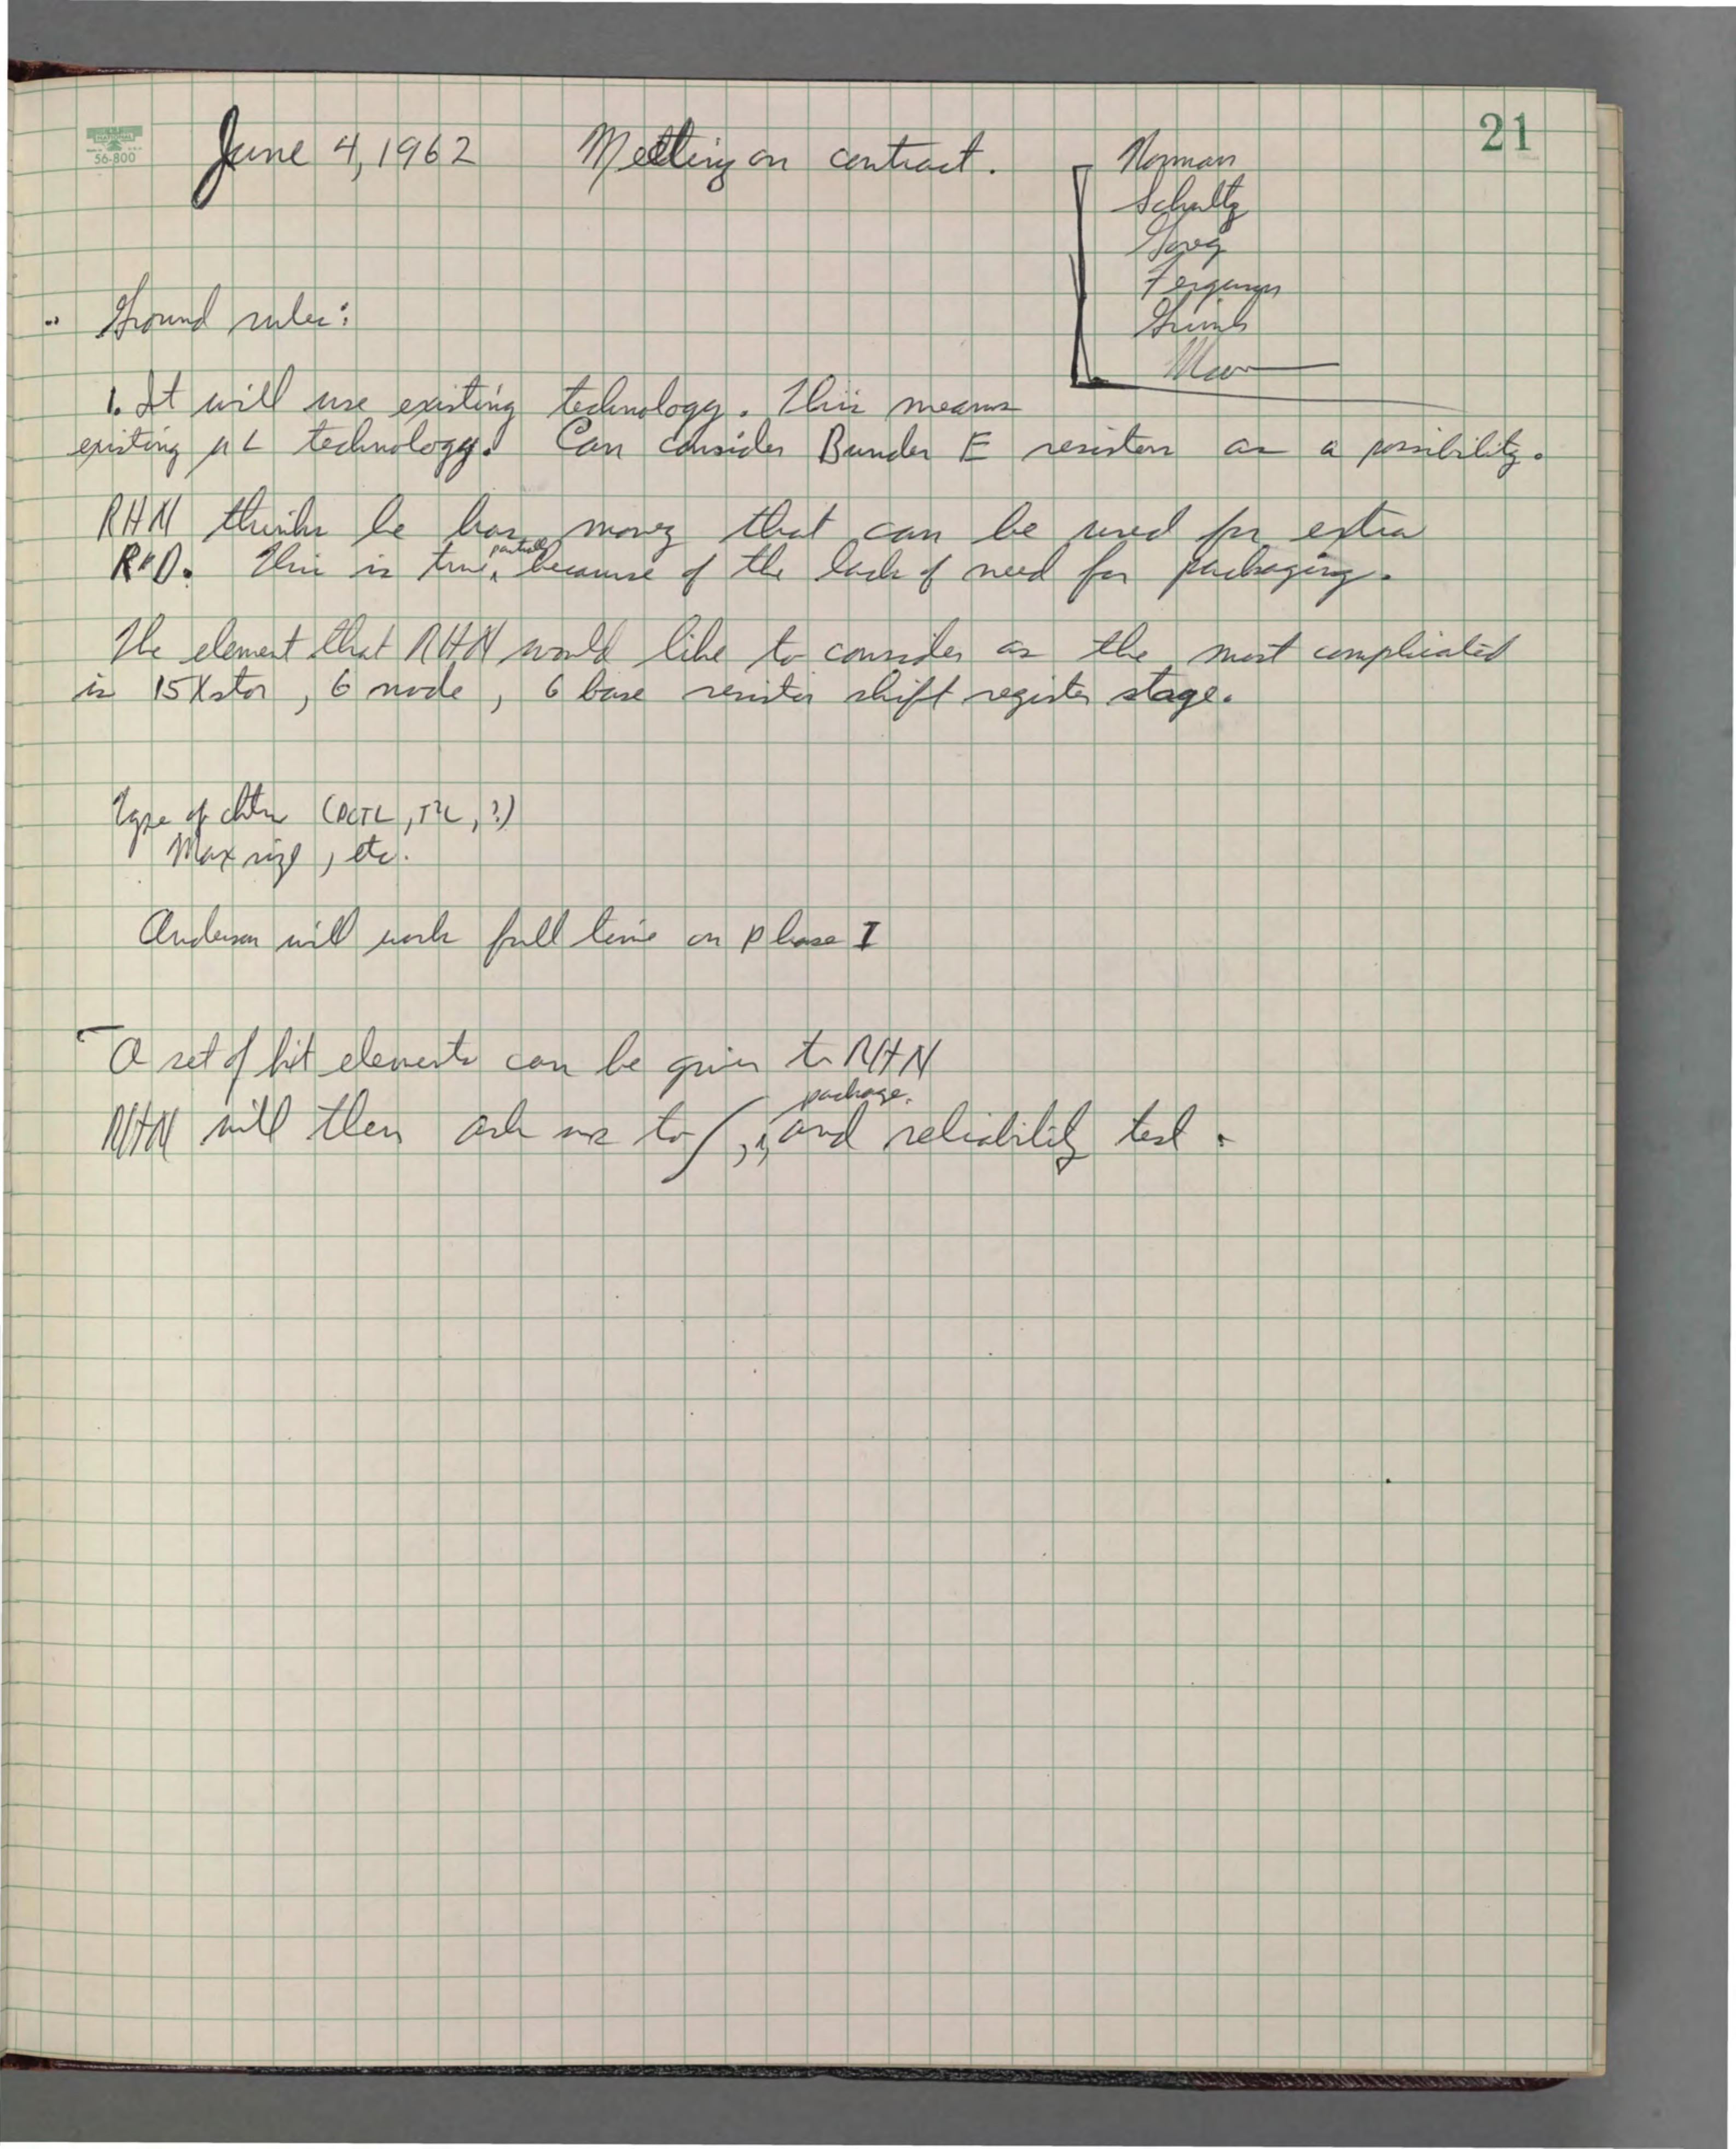 21
NATIONAL
56-800
June 4, 1962 Meeting on contract.
Norman
Schultz
Ferguson
Ground rules:
1. It will use existing technology. This means
existing µL technology. Can consider Bunder E resistors as a possibility.
RHN thinks he has money that can be used for extra
R&D. This is true, partially because of the lack of need for packaging.
The element that RHN would like to consider as the most complicated
is 15 Xstor, 6 node, 6 base resistor shift register stage.
Type of (DCTL, T²L, ?)
Max size, etc.
Anderson will work full time on phase I
A set of bit elements can be given to RHN
RHN will then ask us to , package, and reliability test.